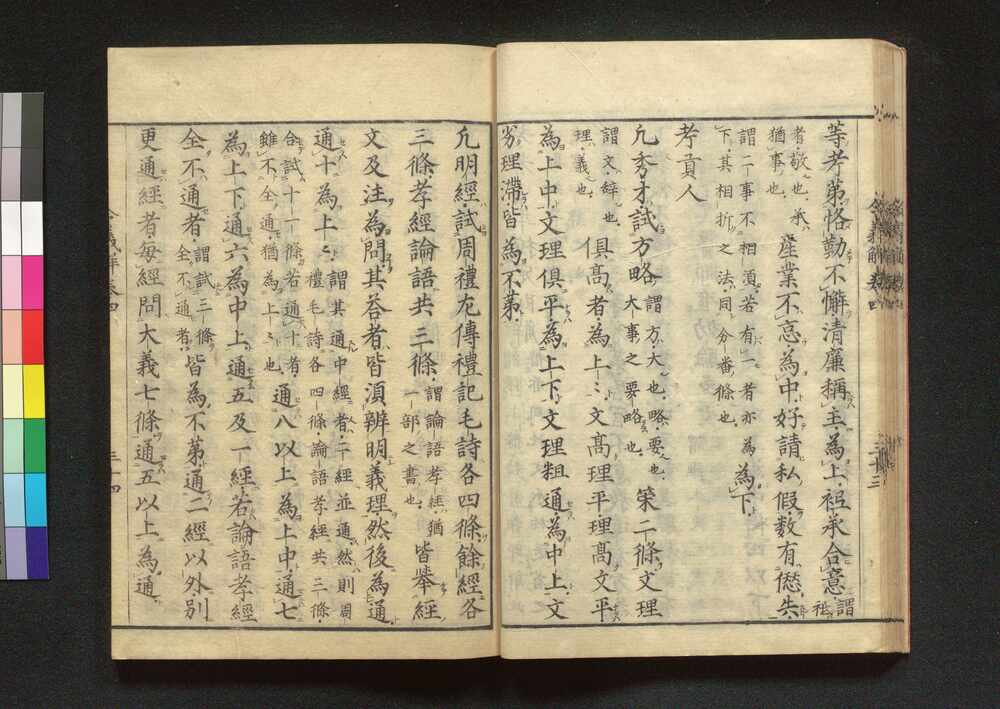 等考第恪勤不懈清廉稱主為上祗承合意謂祗
者敬也承
猶事也
産業不怠為中好請私假数有愆失
謂二事不相須若有一者亦為
下其相折之法同分番條也
為下
考貢人
凢秀才試方略謂方大也略要也
大事之要略也
策二條文理
謂文辞也
理義也
俱髙者為上〻文髙理平理髙文平
為上中文理俱平為上下文理粗通為中上文
劣理滯皆為不第
凢明經試周禮左傳禮記毛詩各四條餘經各
三條孝經論語共三條謂論語孝経猶
一部之書也
皆挙經
文及注為問其答者皆湏辨明義理然後為通
通十為上〻謂其通中經者二經並通然則周
禮毛詩各四條論語孝經共三條
合試十一條若通十者
雖不全通猶為上〻也
通八以上為上中通七
為上下通六為中上通五及一經若論語孝經
全不通者謂試三條
全不通者
皆為不第通二經以外別
更通經者毎經問大義七條通五以上為通
令義解巻四
三十四
三十三